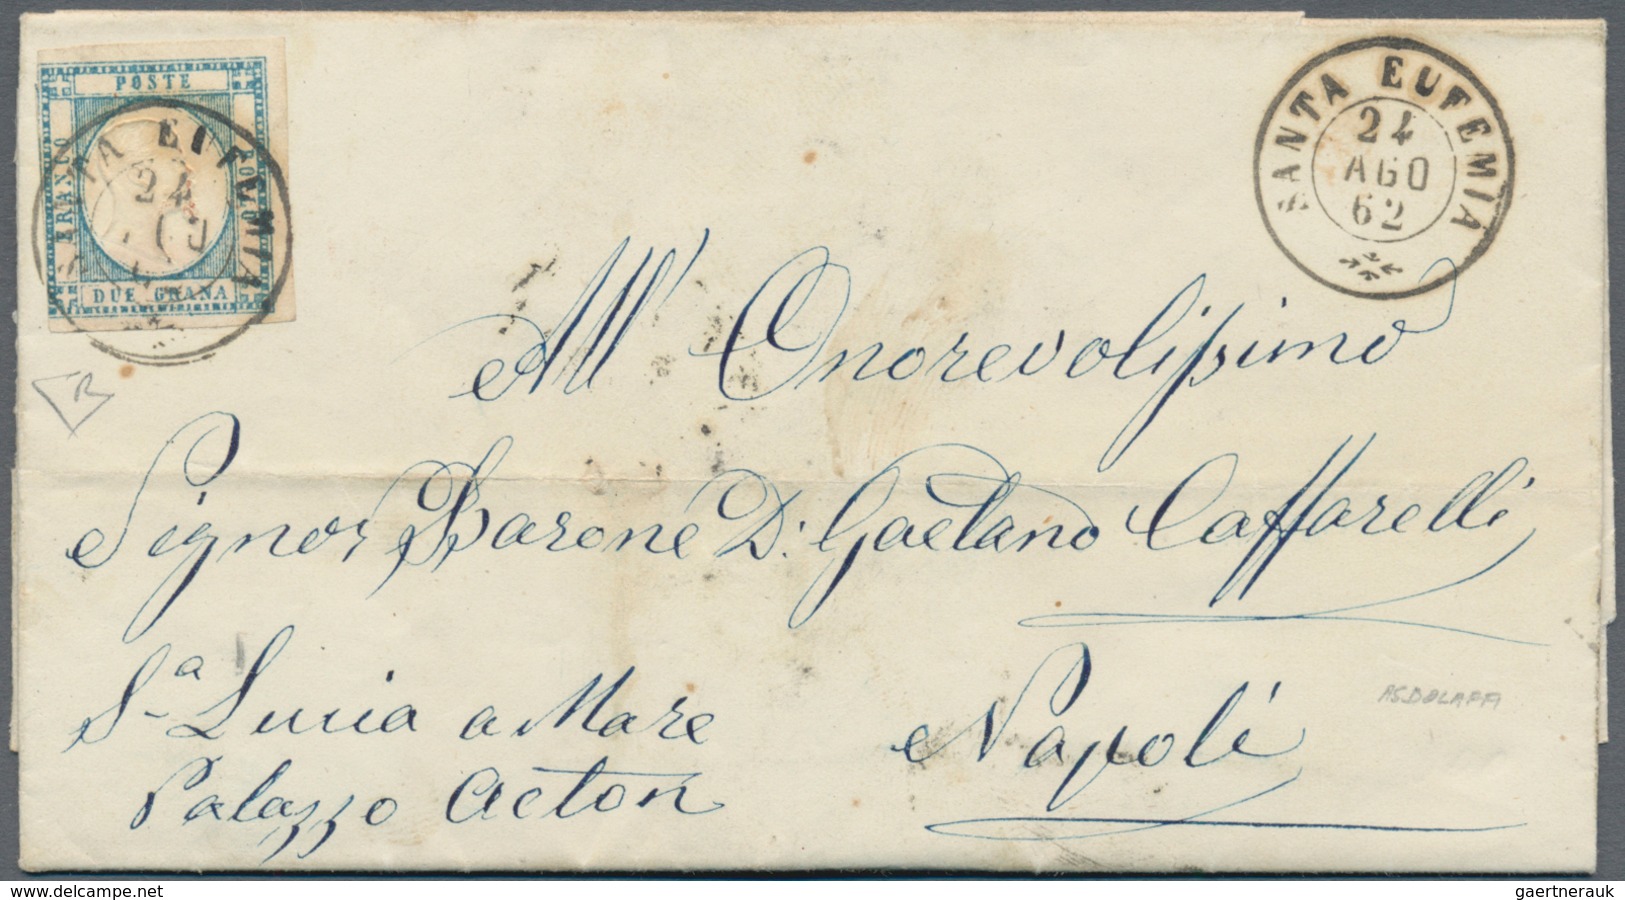 POSTE
FRANCO
BOLLO
DUE GRANA
SANTA EUFEMIA
24
SANTA EUFEMIA
24
AGO
62
All' Onorevolissimo
Signor Barone D: Gaetano Caffarelli
Sª Lucia a Mare
Napoli
Palazzo Acton
R
www.delcampe.net
gaertnerauk